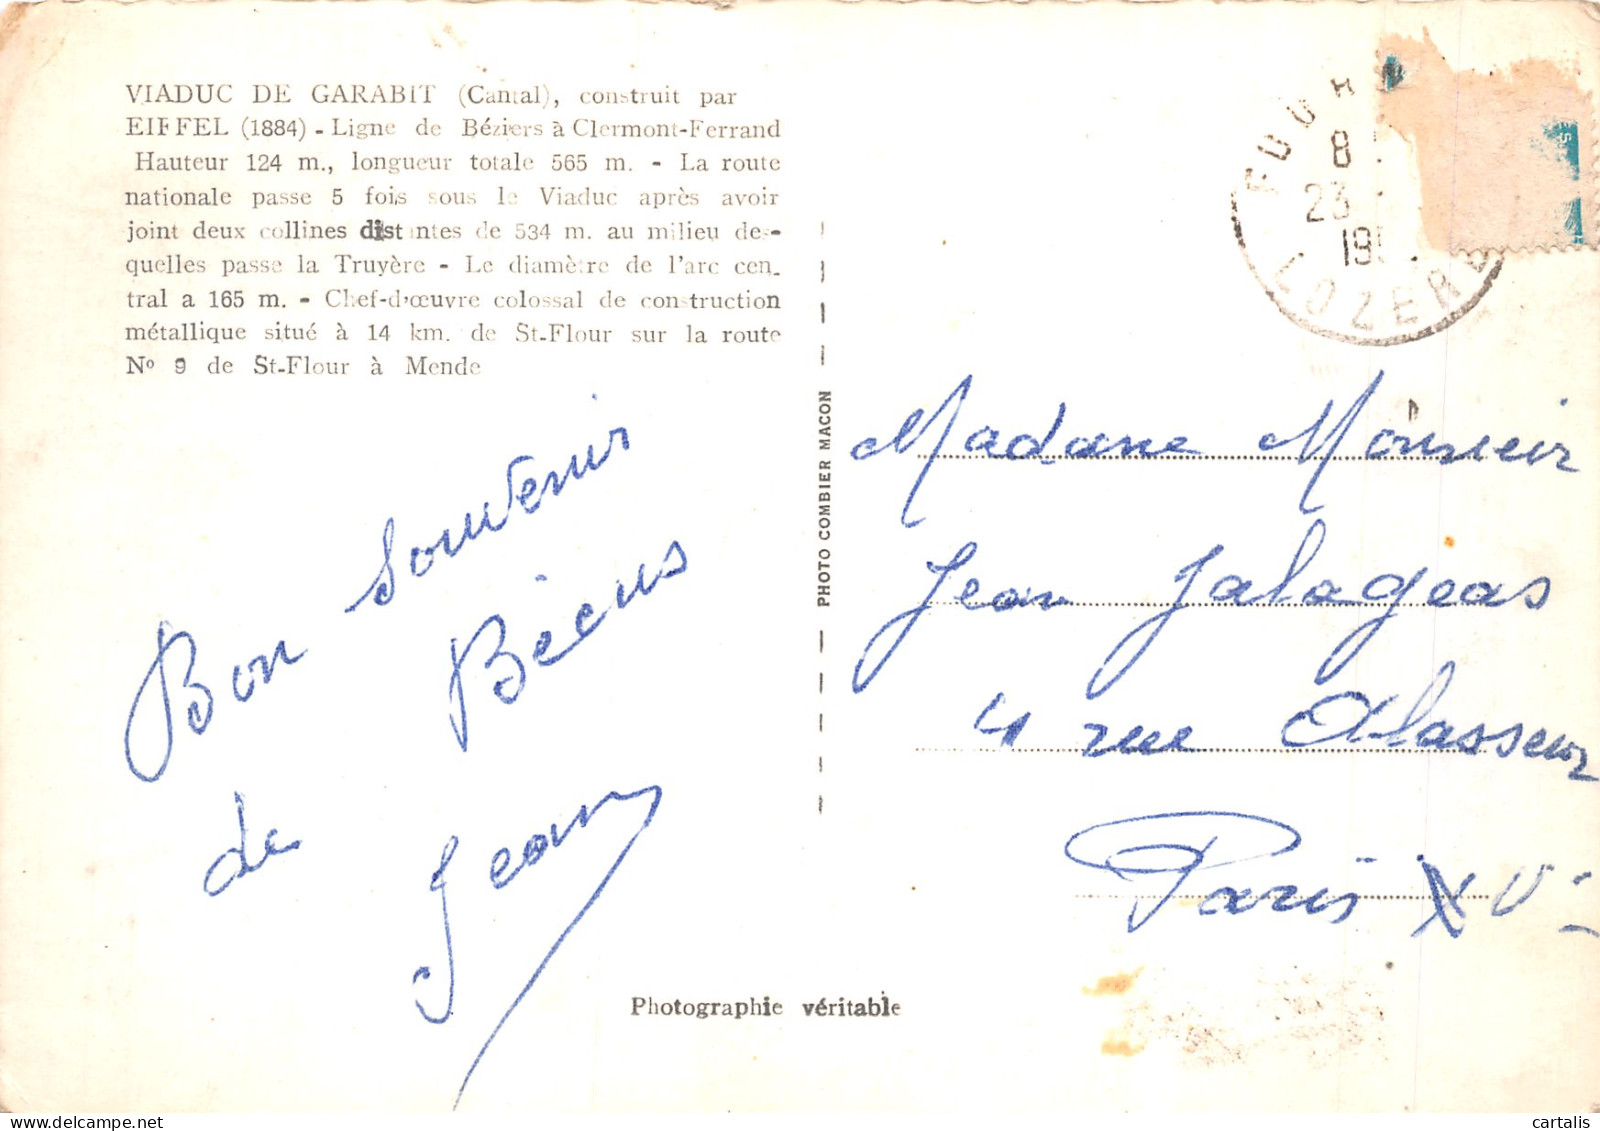 VIADUC DE GARABIT (Cantal), construit par
EIFFEL (1884) - Ligne de Béziers à Clermont-Ferrand
Hauteur 124 m., longueur totale 565 m. - La route
nationale passe 5 fois sous le Viaduc après avoir
joint deux collines distantes de 534 m. au milieu des-
quelles passe la Truyère - Le diamètre de l'arc cen-
tral a 165 m. - Chef-d'œuvre colossal de construction
métallique situé à 14 km. de St-Flour sur la route
Nº 9 de St-Flour à Mende
Bon souvenir
de Bécus
Jean
PHOTO COMBIER MACON
Photographie véritable
FOUR
8
23
195
LOZERE
Madame Monsieur
Jean Jalageas
4 rue Alasseur
Paris XVe
cartalis
delcampe.net